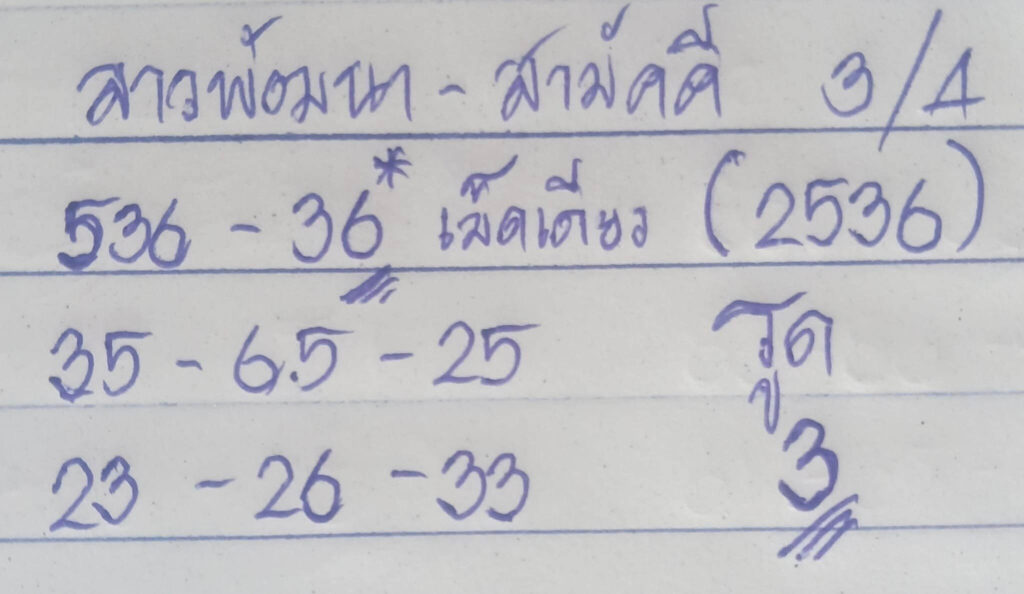 ลาวพัฒนา - สามัคคี 3/4
536 - 36* เม็ดเดียว (2536)
35 - 65 - 25 รูด
23 - 26 - 33 3